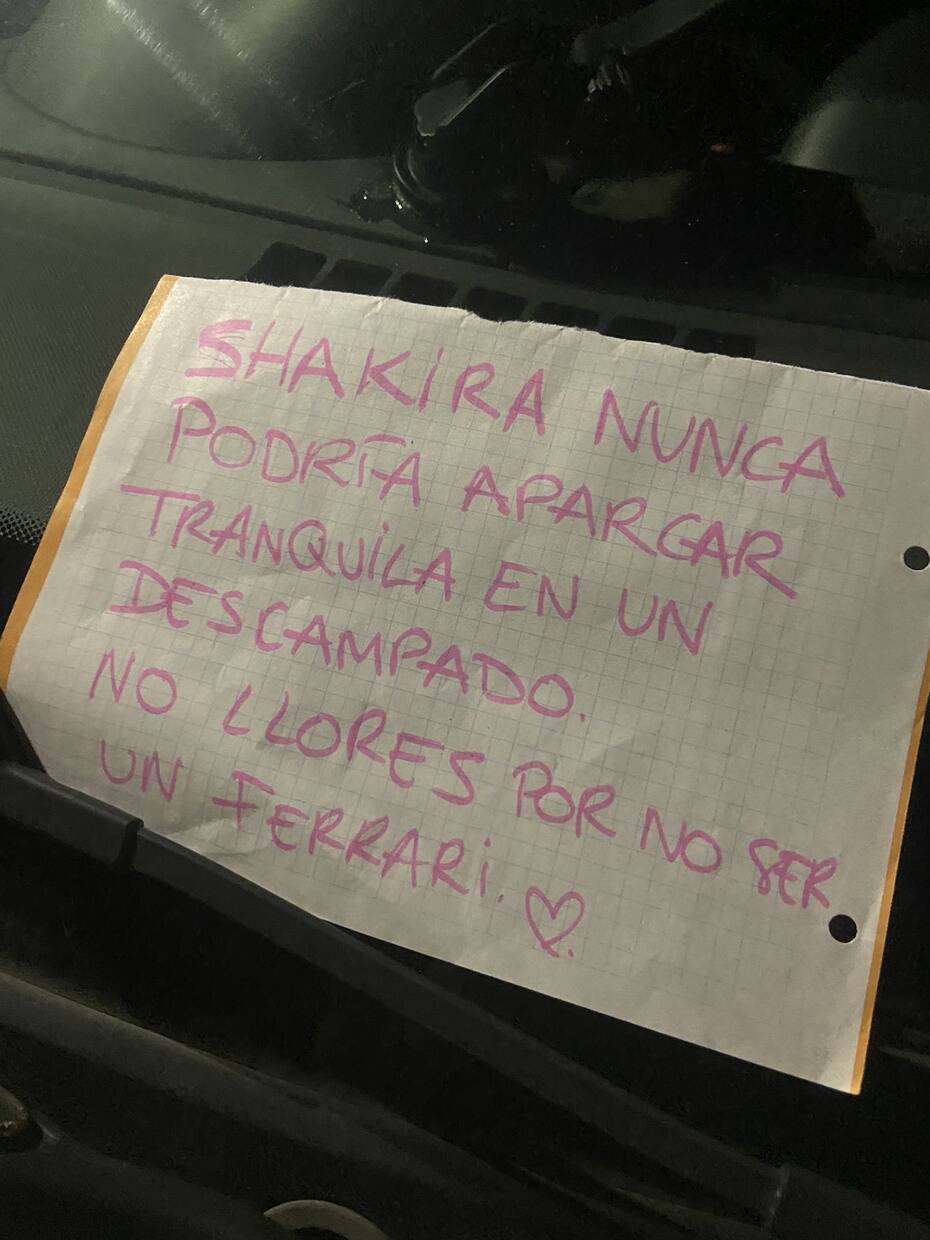 SHAKIRA NUNCA
PODRÍA APARGAR
TRANQUILA EN UN
DESCAMPADO.
NO LLORES POR NO SER
UN FERRARI. ♡.